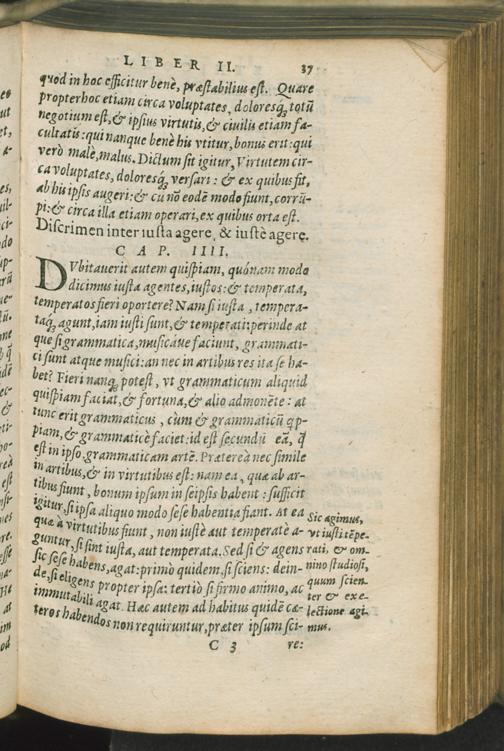 LIBER II. 37
quod in hoc efficitur benè, præstabilius est. Quare
propterhoc etiam circa voluptates, doloresq́;, totũ
negotium est, & ipsius virtutis, & ciuilis etiam fa-
cultatis: qui nanque benè his vtitur, bonus erit: qui
verò malè, malus. Dictum sit igitur, Virtutem cir-
ca voluptates, doloresq́; versari: & ex quibus fit,
ab his ipsis augeri: & cũ nõ eodẽ modo fiunt, corrũ-
pi: & circa illa etiam operari, ex quibus orta est.
Discrimen inter iusta agere, & iustè agere.
CAP. IIII.
DVbitauerit autem quispiam, quónam modo
dicimus iusta agentes, iustos: & temperata,
temperatos fieri oportere? Nam si iusta, tempera-
taq́; agunt, iam iusti sunt, & temperati: perinde at
que si grammatica, musicáue faciunt, grammati-
ci sunt atque musici: an nec in artibus res ita se ha-
bet? Fieri nanq; potest, vt grammaticum aliquid
quispiam faciat, & fortuna, & alio admonẽte: at
tunc erit grammaticus, cùm & grammaticũ qp-
piam, & grammaticè faciet: id est secundũ eã, q̃
est in ipso grammaticam artẽ. Præterea nec simile
in artibus, & in virtutibus est: nam ea, quæ ab ar-
tibus fiunt, bonum ipsum in seipsis habent: sufficit
igitur, si ipsa aliquo modo sese habentia fiant. At ea
quæ à virtutibus fiunt, non iustè aut temperatè a-
guntur, si sint iusta, aut temperata. Sed si & agens
sic sese habens, agat: primò quidem, si sciens: dein-
de, si eligens propter ipsa: tertiò si firmo animo, ac
immutabili agat. Hæc autem ad habitus quidẽ cæ-
teros habendos non requiruntur, præter ipsum sci-
Sic agimus,
vt iusti tẽpe-
rati, & om-
nino studiosi,
quum scien-
ter & ex e-
lectione agi-
mus.
C 3 re: